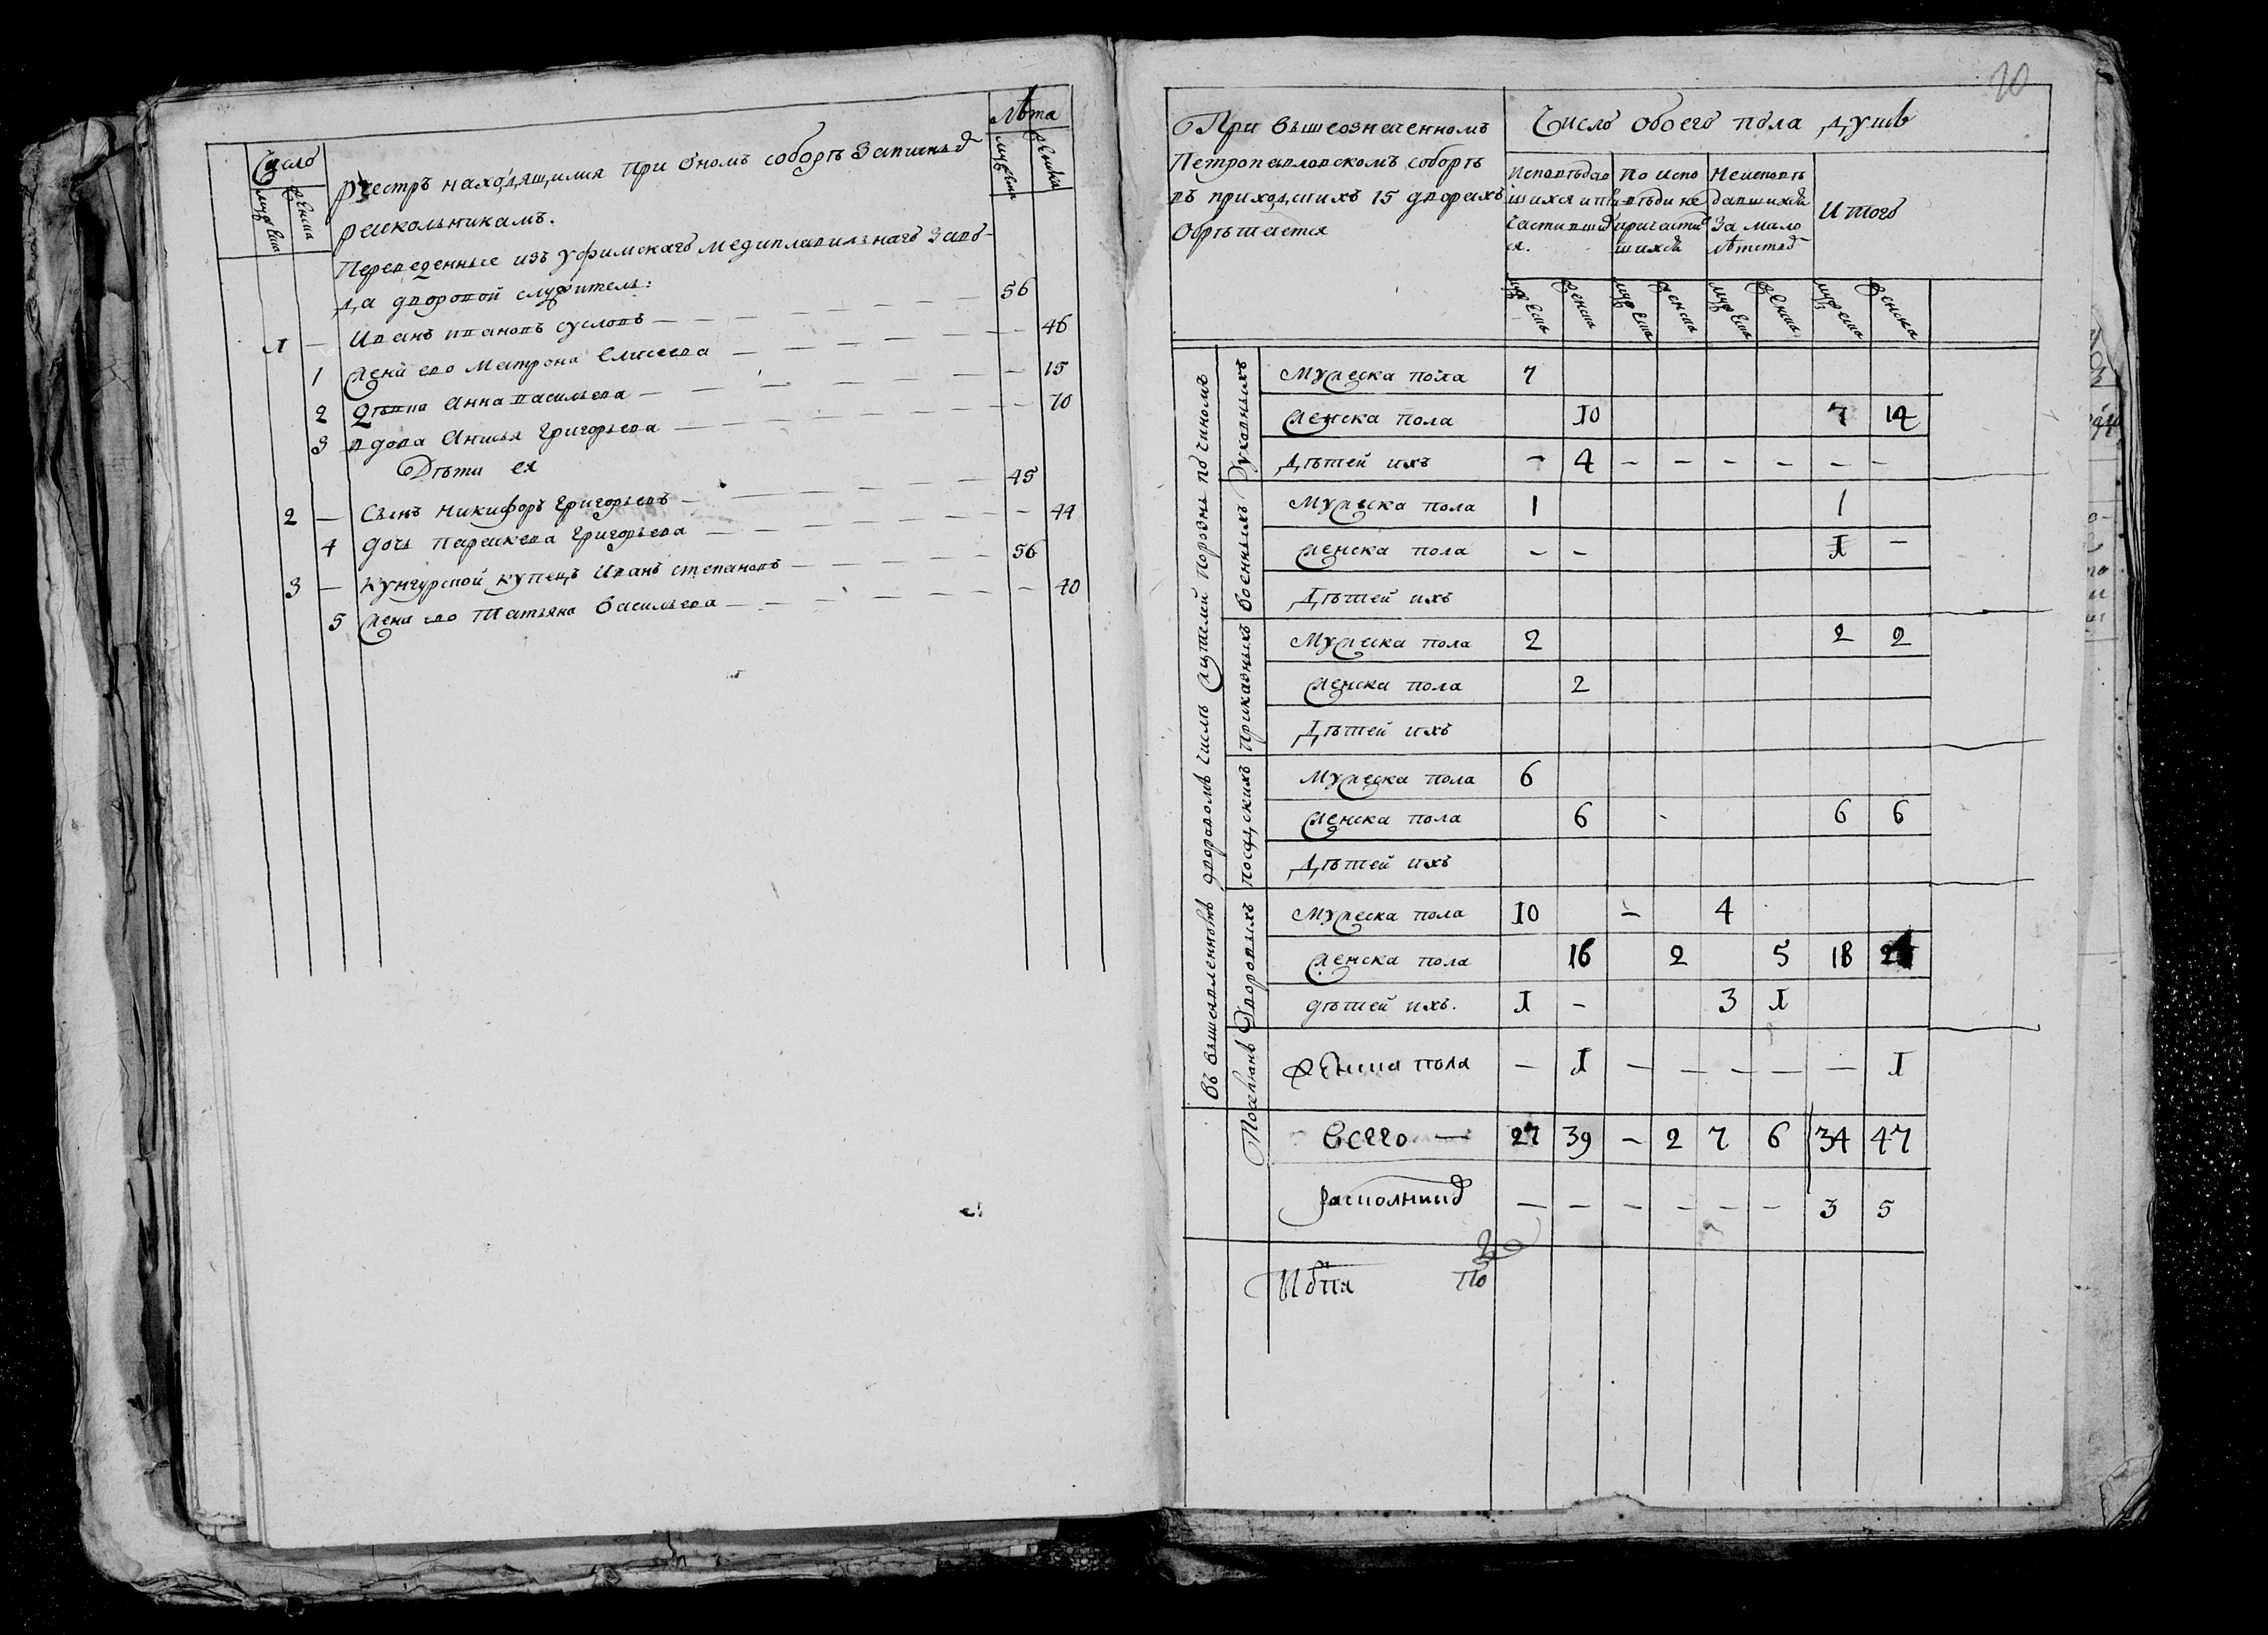 Число
мужеска
женска
реестръ находящимся при ономъ соборѣ записнымъ
раскольникамъ.
Лѣта
мужеска
женска
Переведенные изъ уфимскаго медиплавильнаго заво-
да дворовой служитель:
1 — Иванъ ивановъ сусловъ — 56
1 жена ево Матрона Елисеева — 46
2 Дѣвка Анна васильева — 15
3 вдова Анисья Григорьева — 70
Дѣти ея
2 — Сынъ Никифоръ Григорьевъ — 45
4 дочь парасковья Григорьева — 44
3 — Кунгурской купецъ Иванъ степановъ — 56
5 жена ево Татьяна Васильева — 40
20
При вышеозначенномъ
Петропавловскомъ соборѣ
въ приходскихъ 15 дворахъ
обрѣтается
Число обоего пола душъ
Исповѣдав
шихся и при
частивших
ся.
По испо
вѣди не
причасти
шихся
Неисповѣ
давшихся
за мало
лѣтствомъ
Итого
мужеска женска мужеска женска мужеска женска мужеска женска
Въ вышеявленномъ дворовомъ числѣ жителей порознь по чиномъ
Духовныхъ
Мужеска пола 7
Женска пола 10 7 14
Дѣтей ихъ – 4 – – – – – –
Военныхъ
Мужеска пола 1 1
Женска пола – – 1 –
Дѣтей ихъ
Приказныхъ
Мужеска пола 2 2 2
Женска пола 2
Дѣтей ихъ
посадскихъ
Мужеска пола 6
Женска пола 6 6 6
Дѣтей ихъ
Дворовыхъ
Мужеска пола 10 – 4
Женска пола 16 2 5 18
дѣтей ихъ. 1 – 3 1
Поселянъ
женска пола – 1 – – – – – 1
Всего — 27 39 – 2 7 6 34 47
– – – – – – 3 5
по